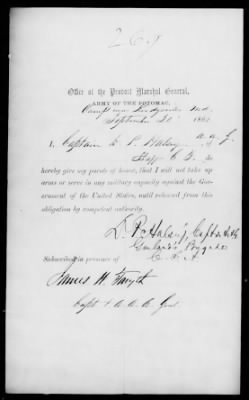 Office of the Provost Marshal General,
ARMY OF THE POTOMAC,
Camp near Md.
September 20 186
I, Captain L. P. A. A. G.
Staff C. S. do
hereby give my parole of honor, that I will not take
arms or serve in any military capacity against the Gov-
ernment of the United States, until released from this
obligation by competent authority.
L. P. Capt
Brigade
C. S. A
Subscribed in presence of
James H. Forsyth
Capt & A. A. A. Genl